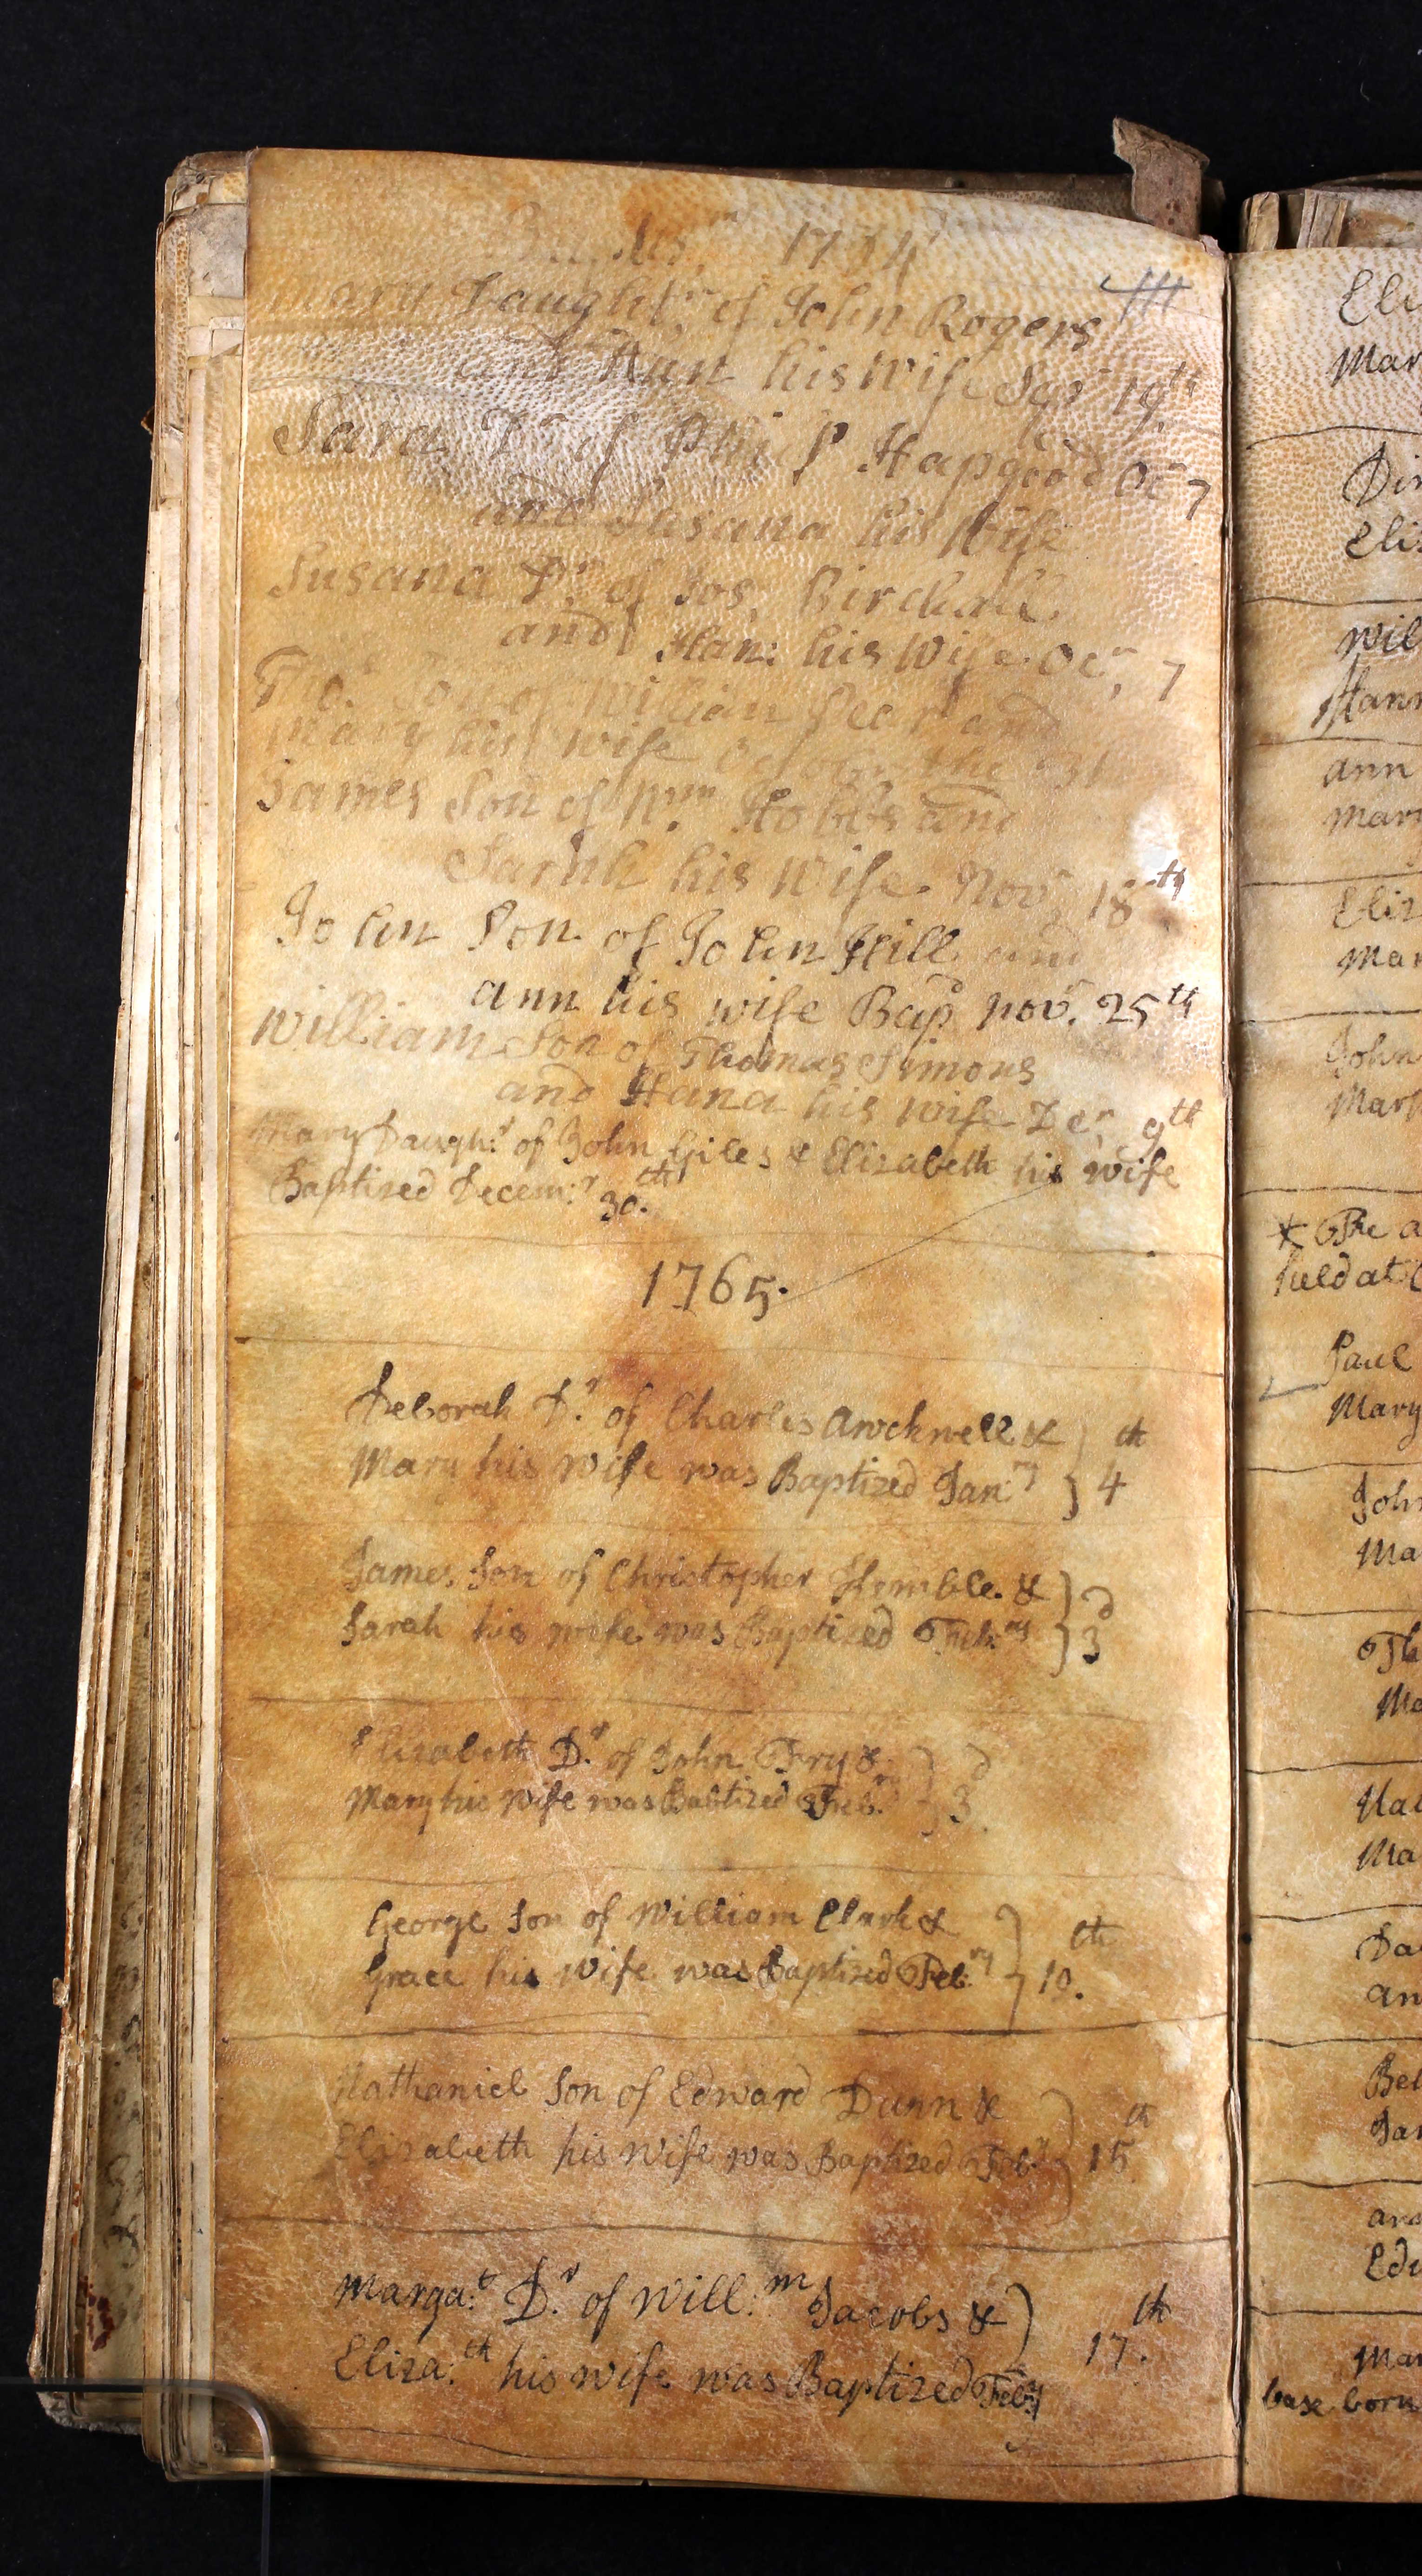 1764
Mary Daught.r of John Rogers
and Ann his Wife Sepr 19th
Sara Dr of Philip Hapgood Oc 7
and Susana his Wife
Susana Dr of Jos, Birchall
and Han: his Wife Ocr, 7
Tho.s Son of William and
Mary his wife October the 31
James Son of Wm Hobbs and
Sarah his Wife Novr 18th
John Son of John Hill and
ann his wife Bapd nov.r 25th
William Son of Thomas Simons
and Hana his wife Decr 9th
Mary Daugh:r of John Giles & Elizabeth his wife
Baptized Decem:r 30.th
1765.
Deborah D.r of Charles &
Mary his wife was Baptized Jan:ry 4th
James Son of Christopher &
Sarah his wife was Baptized Feb:ry 3d
Elizabeth D.r of John Fry &
Mary his Wife was Babtized Feb.ry 3d
George Son of William Clark &
Grace his Wife was Baptized Feb:ry 10.th
Nathaniel Son of Edward Dunn &
Elizabeth his Wife was Baptized Feb:ry 15th
Marga:t D.r of Will:m Jacobs &
Eliza:th his wife was Baptized Feb:ry 17.th
Mar
ann
Mar
John
* The a
held at
Paul
Mary
John
Ma
Ma
Ma
an
base born